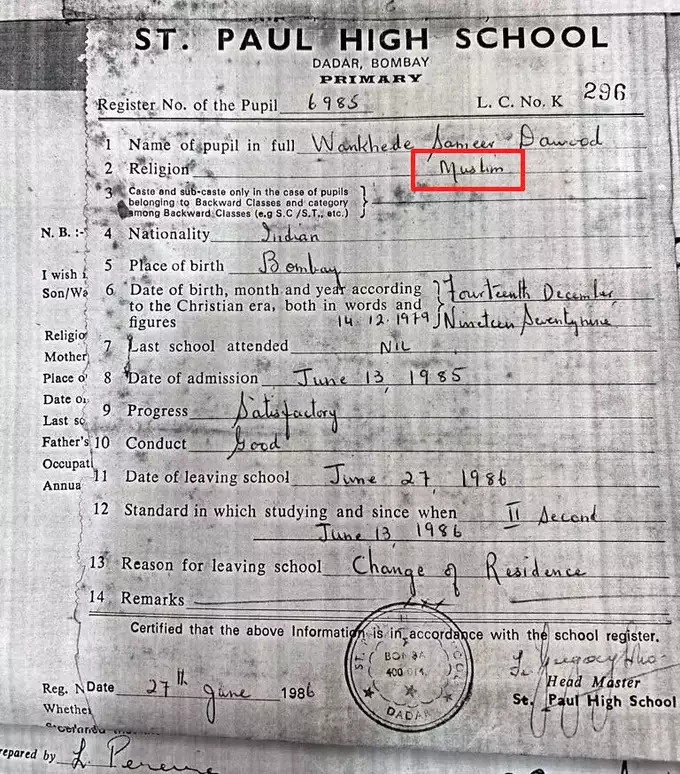 ST. PAUL HIGH SCHOOL
DADAR, BOMBAY
PRIMARY
Register No. of the Pupil 6985 L. C. No. K 296
1 Name of pupil in full Wankhede Sameer Dawood
2 Religion Muslim
3 Caste and sub-caste only in the case of pupils
belonging to Backward Classes and category
among Backward Classes (e.g S.C /S.T., etc.)
N. B. :- 4 Nationality Indian
5 Place of birth Bombay
I wish
Son/Wa 6 Date of birth, month and year according Fourteenth December
to the Christian era, both in words and
figures 14.12.1979 Nineteen Seventynine
Religio
7 Last school attended NIL
Mother
Place o 8 Date of admission June 13, 1985
Date o
9 Progress Satisfactory
Last sc
Father's 10 Conduct Good
Occupat
Annua 11 Date of leaving school June 27, 1986
12 Standard in which studying and since when II Second
June 13, 1986
13 Reason for leaving school Change of Residence
14 Remarks
Certified that the above Information is in accordance with the school register.
BOMBAY
400 014
DADAR
Reg. N Date 27th June 1986
Head Master
St. Paul High School
Whethe
repared by